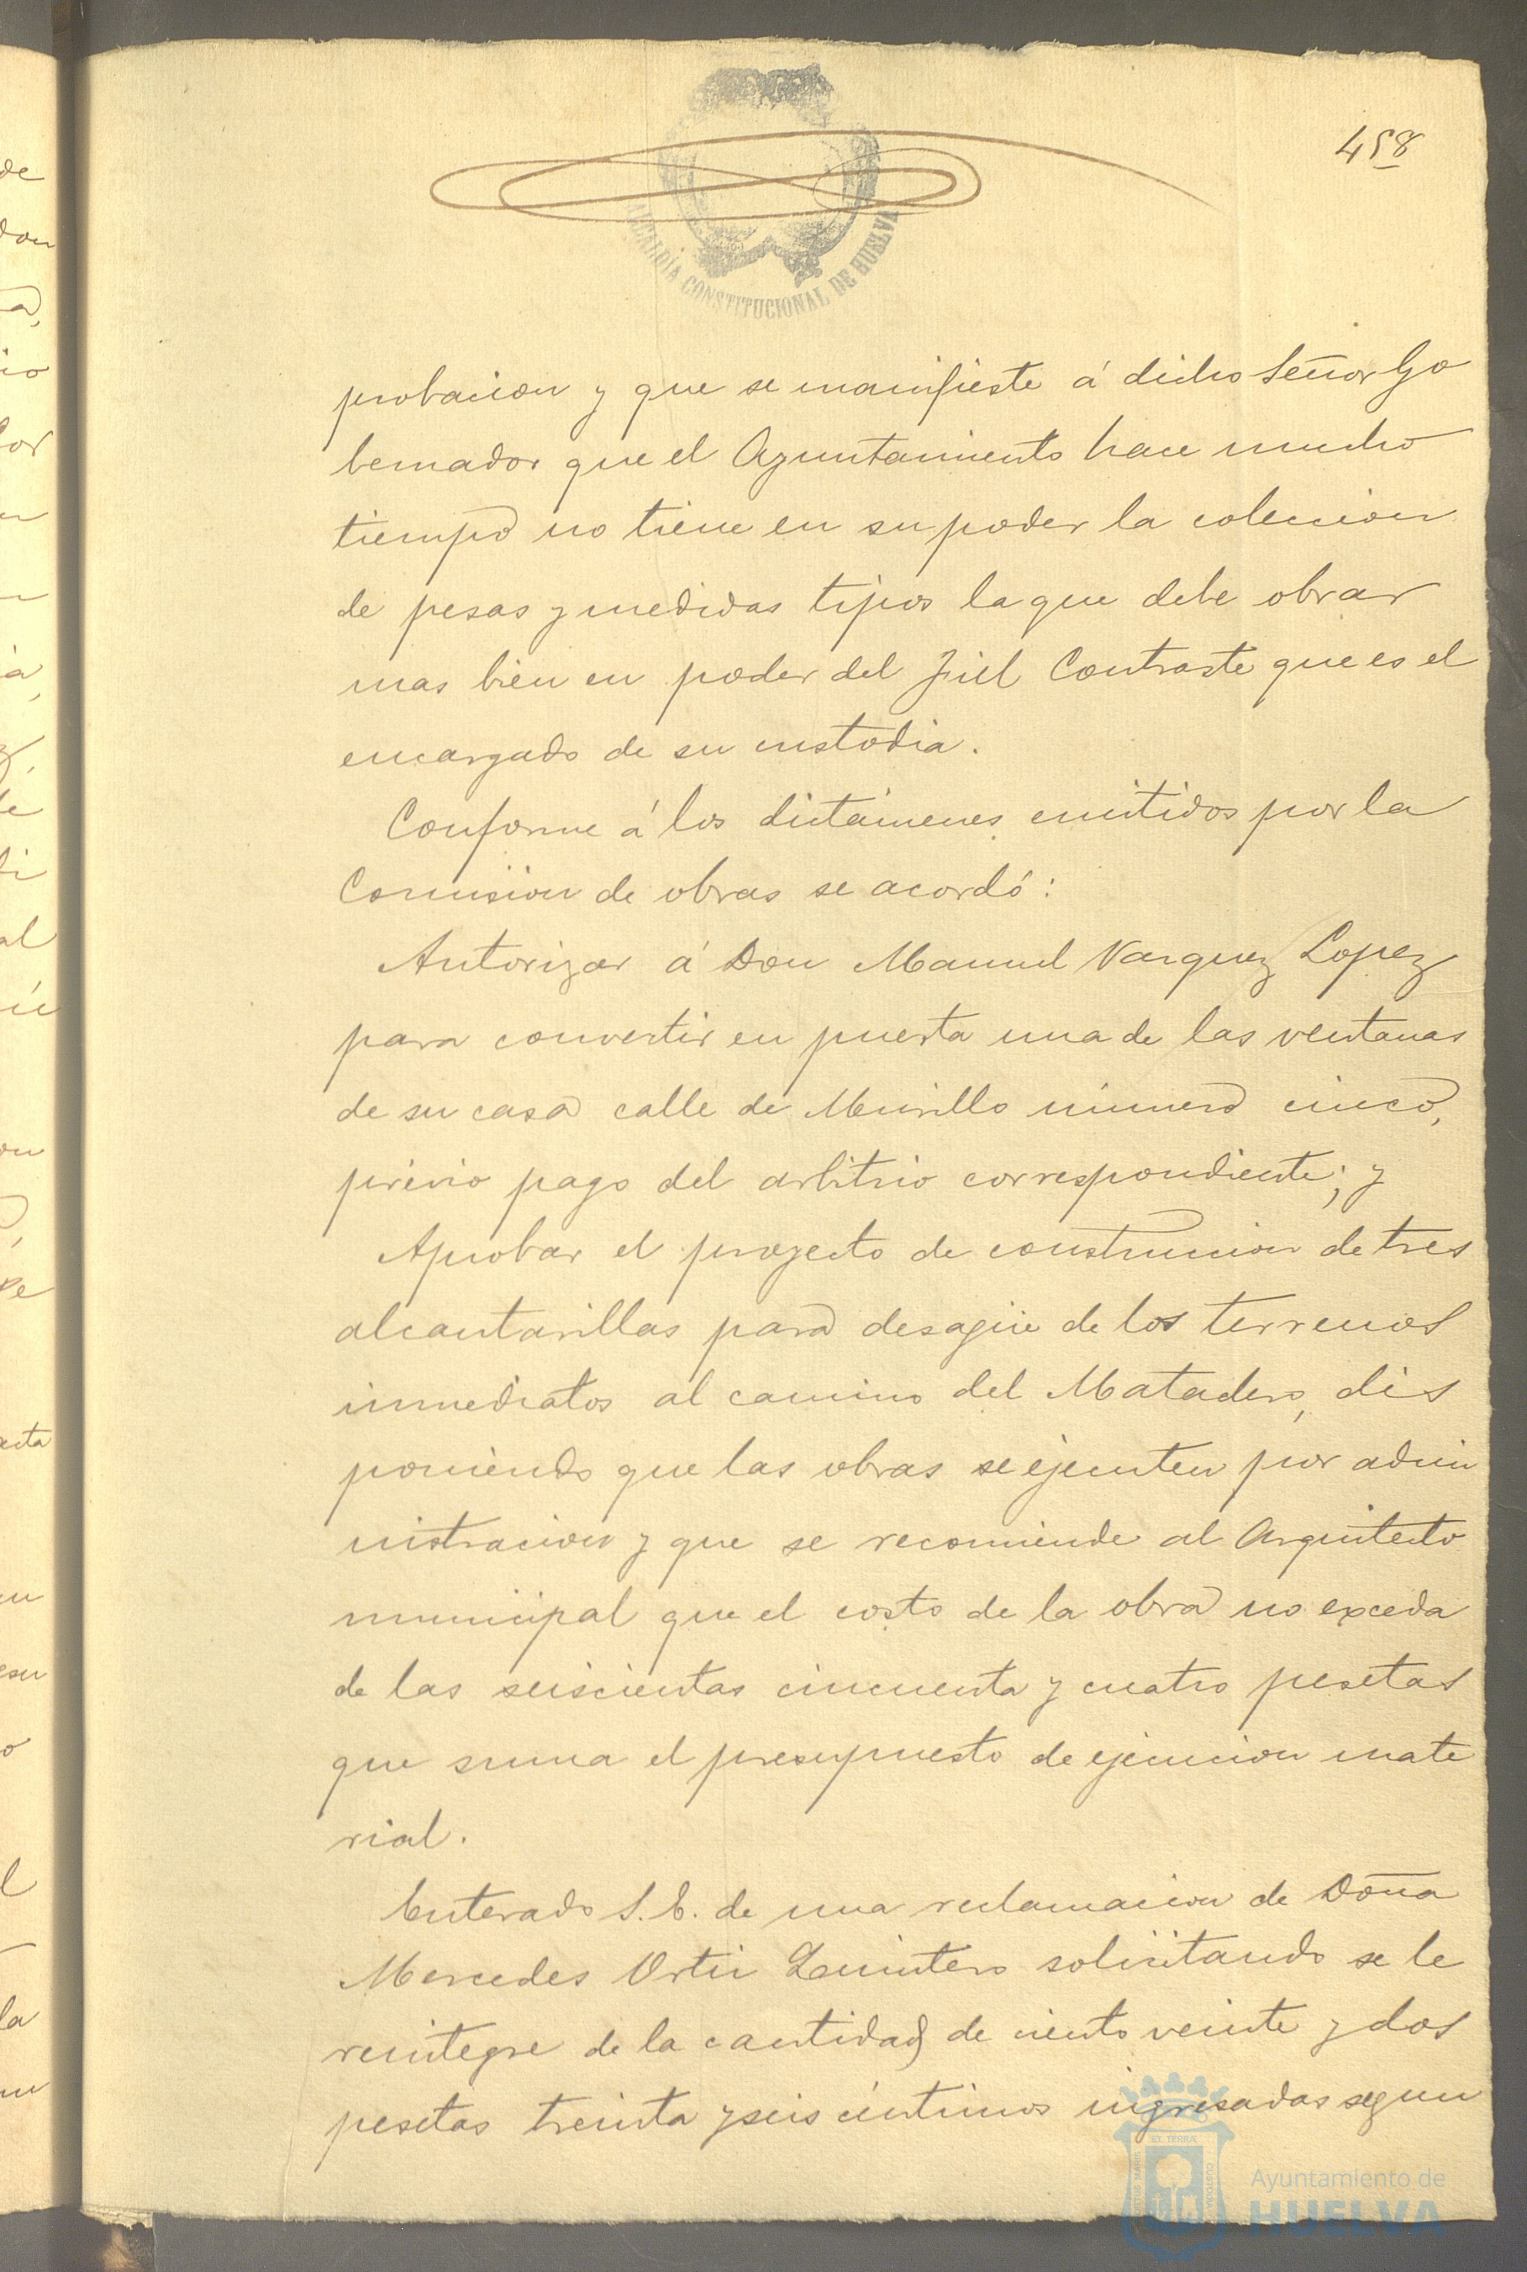 458
ALCALDÍA CONSTITUCIONAL DE HUELVA
probacion y que se manifieste á dicho Señor Go
bernador que el Ayuntamiento hace mucho
tiempo no tiene en su poder la coleccion
de pesas y medidas tipos la que debe obrar
mas bien en poder del Fiel Contraste que es el
encargado de su custodia.
Conforme á los dictámenes emitidos por la
Comision de obras se acordó:
Autorizar á Don Manuel Vazquez Lopez
para convertir en puerta una de las ventanas
de su casa calle de Murillo número cinco,
previo pago del arbitrio correspondiente; y
Aprobar el proyecto de construccion de tres
alcantarillas para desagüe de los terrenos
inmediatos al camino del Matadero, dis
poniendo que las obras se ejecuten por admi
nistracion y que se recomiende al Arquitecto
municipal que el costo de la obra no exceda
de las seiscientas cincuenta y cuatro pesetas
que suma el presupuesto de ejecucion mate
rial.
Enterado S.E. de una reclamacion de Doña
Mercedes Ortiz Quintero solicitando se le
reintegre de la cantidad de ciento veinte y dos
pesetas treinta y seis céntimos ingresadas segun
Ayuntamiento de
HUELVA